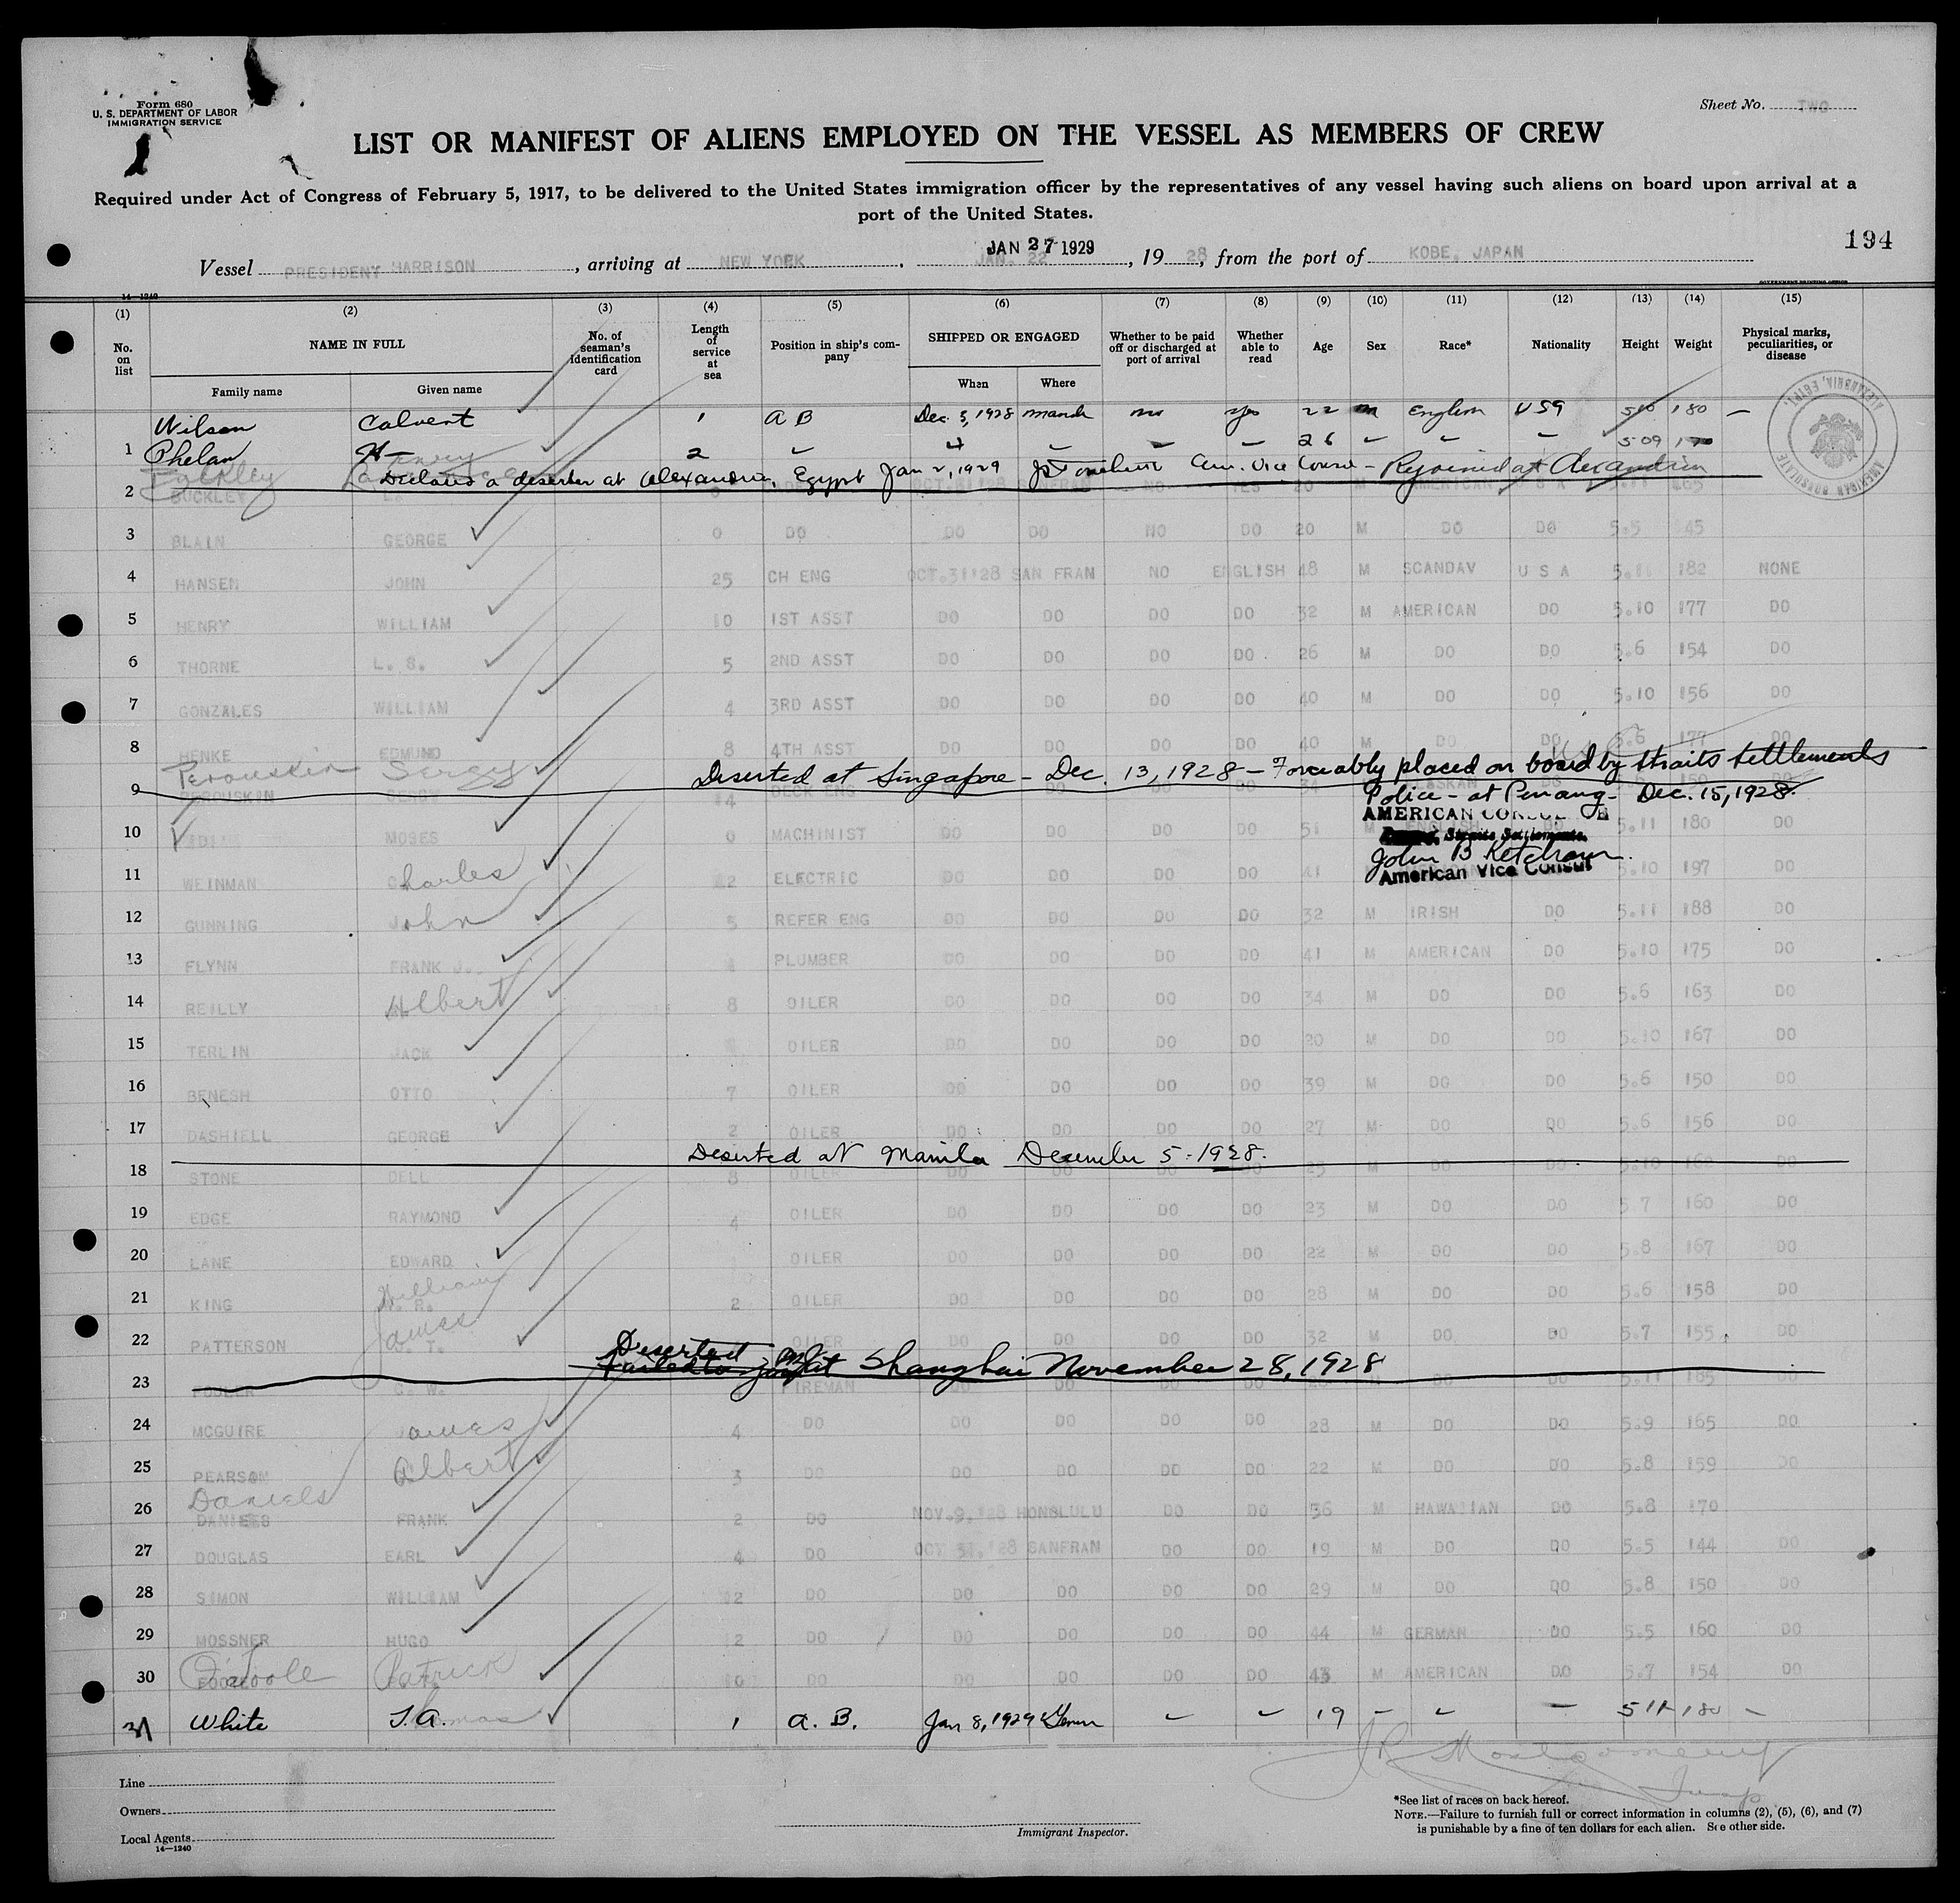 Form 680
U. S. DEPARTMENT OF LABOR
IMMIGRATION SERVICE
Sheet No. TWO
LIST OR MANIFEST OF ALIENS EMPLOYED ON THE VESSEL AS MEMBERS OF CREW
Required under Act of Congress of February 5, 1917, to be delivered to the United States immigration officer by the representatives of any vessel having such aliens on board upon arrival at a
port of the United States.
194
JAN 27 1929
Vessel PRESIDENT HARRISON, arriving at NEW YORK, JAN. 22, 1928, from the port of KOBE, JAPAN
14—1240
GOVERNMENT PRINTING OFFICE
(1) (2) (3) (4) (5) (6) (7) (8) (9) (10) (11) (12) (13) (14) (15)
No. on list
NAME IN FULL
Family name Given name
No. of seaman's identification card
Length of service at sea
Position in ship's company
SHIPPED OR ENGAGED
When Where
Whether to be paid off or discharged at port of arrival
Whether able to read
Age Sex Race* Nationality Height Weight
Physical marks, peculiarities, or disease
AMERICAN CONSULATE ALEXANDRIA, EGYPT
Wilson Calvert 1 A B Dec. 3, 1928 no yes 22 m English USA 5 10 180 —
1 Phelan H— 2 26 5 09
Declared a deserter at Alexandria, Egypt Jan 2, 1929 Am. Vice Consul - Rejoined at Alexandria
2 BUCKLEY L. OCT.31'28 SANFRAN NO YES 20 M AMERICAN U S A 5.11 165
3 BLAIN GEORGE 0 DO DO DO NO DO 20 M DO DO 5.5 45
4 HANSEN JOHN 25 CH ENG OCT.31'28 SAN FRAN NO ENGLISH 48 M SCANDAV U S A 5.11 182 NONE
5 HENRY WILLIAM 10 1ST ASST DO DO DO DO 32 M AMERICAN DO 5.10 177 DO
6 THORNE L. S. 5 2ND ASST DO DO DO DO 26 M DO DO 5.6 154 DO
7 GONZALES WILLIAM 4 3RD ASST DO DO DO DO 40 M DO DO 5.10 156 DO
8 HENKE EDMUND 8 4TH ASST DO DO DO DO 40 M DO DO 5.6 177 DO
Perouskin Sergey Deserted at Singapore - Dec. 13, 1928 - Forceably placed on board by Straits Settlements
9 PEROUSKIN SERGY DECK ENG
Police - at Penang - Dec. 15, 1928.
AMERICAN CONSUL
Straits Settlements.
John B Ketcham.
American Vice Consul
10 MOSES 0 MACHINIST DO DO DO DO 51 M ENGLISH 5.11 180 DO
11 WEINMAN Charles 12 ELECTRIC DO DO DO DO 41 5.10 197 DO
12 GUNNING John 5 REFER ENG DO DO DO DO 32 M IRISH DO 5.11 188 DO
13 FLYNN FRANK J. PLUMBER DO DO DO DO 41 M AMERICAN DO 5.10 175 DO
14 REILLY Albert 8 OILER DO DO DO DO 34 M DO DO 5.6 163 DO
15 TERLIN JACK OILER DO DO DO DO 20 M DO DO 5.10 167 DO
16 BENESH OTTO 7 OILER DO DO DO DO 39 M DO DO 5.6 150 DO
17 DASHIELL GEORGE 2 OILER DO DO DO DO 27 M DO DO 5.6 156 DO
Deserted at Manila December 5 - 1928.
18 STONE DELL 8 OILER DO DO DO DO 25 M DO DO 5.10 160 DO
19 EDGE RAYMOND 4 OILER DO DO DO DO 23 M DO DO 5 7 160 DO
20 LANE EDWARD OILER DO DO DO DO 22 M DO DO 5.8 167 DO
William
21 KING W. R. 2 OILER DO DO DO DO 28 M DO DO 5.6 158 DO
James
22 PATTERSON W. T. OILER DO DO DO DO 32 M DO DO 5.7 155 DO
Deserted
Failed to join at Shanghai November 28, 1928
23 C. W. FIREMAN DO DO DO DO M DO DO 5.11 185 DO
24 MCGUIRE James 4 DO DO DO DO DO 28 M DO DO 5.9 165 DO
25 PEARSON Albert 3 DO DO DO DO DO 22 M DO DO 5.8 159 DO
Daniels
26 DANIELS FRANK 2 DO NOV.9.'28 HONOLULU DO DO 36 M HAWAIIAN DO 5.8 170
27 DOUGLAS EARL 4 DO OCT 31.'28 SANFRAN DO DO 19 M DO DO 5.5 144 DO
28 SIMON WILLIAM 12 DO DO DO DO DO 29 M DO DO 5.8 150 DO
29 MOSSNER HUGO 2 DO DO DO DO DO 44 M GERMAN DO 5.5 160 DO
30 O'Toole Patrick 10 DO DO DO DO DO 43 M AMERICAN DO 5.7 154 DO
31 White T.A. 1 A. B. Jan 8, 1929 Genoa 19 5 11 180 —
J R Montgomery
Insp
Line
Owners
Local Agents
14—1240
Immigrant Inspector.
*See list of races on back hereof.
NOTE.—Failure to furnish full or correct information in columns (2), (5), (6), and (7)
is punishable by a fine of ten dollars for each alien. See other side.